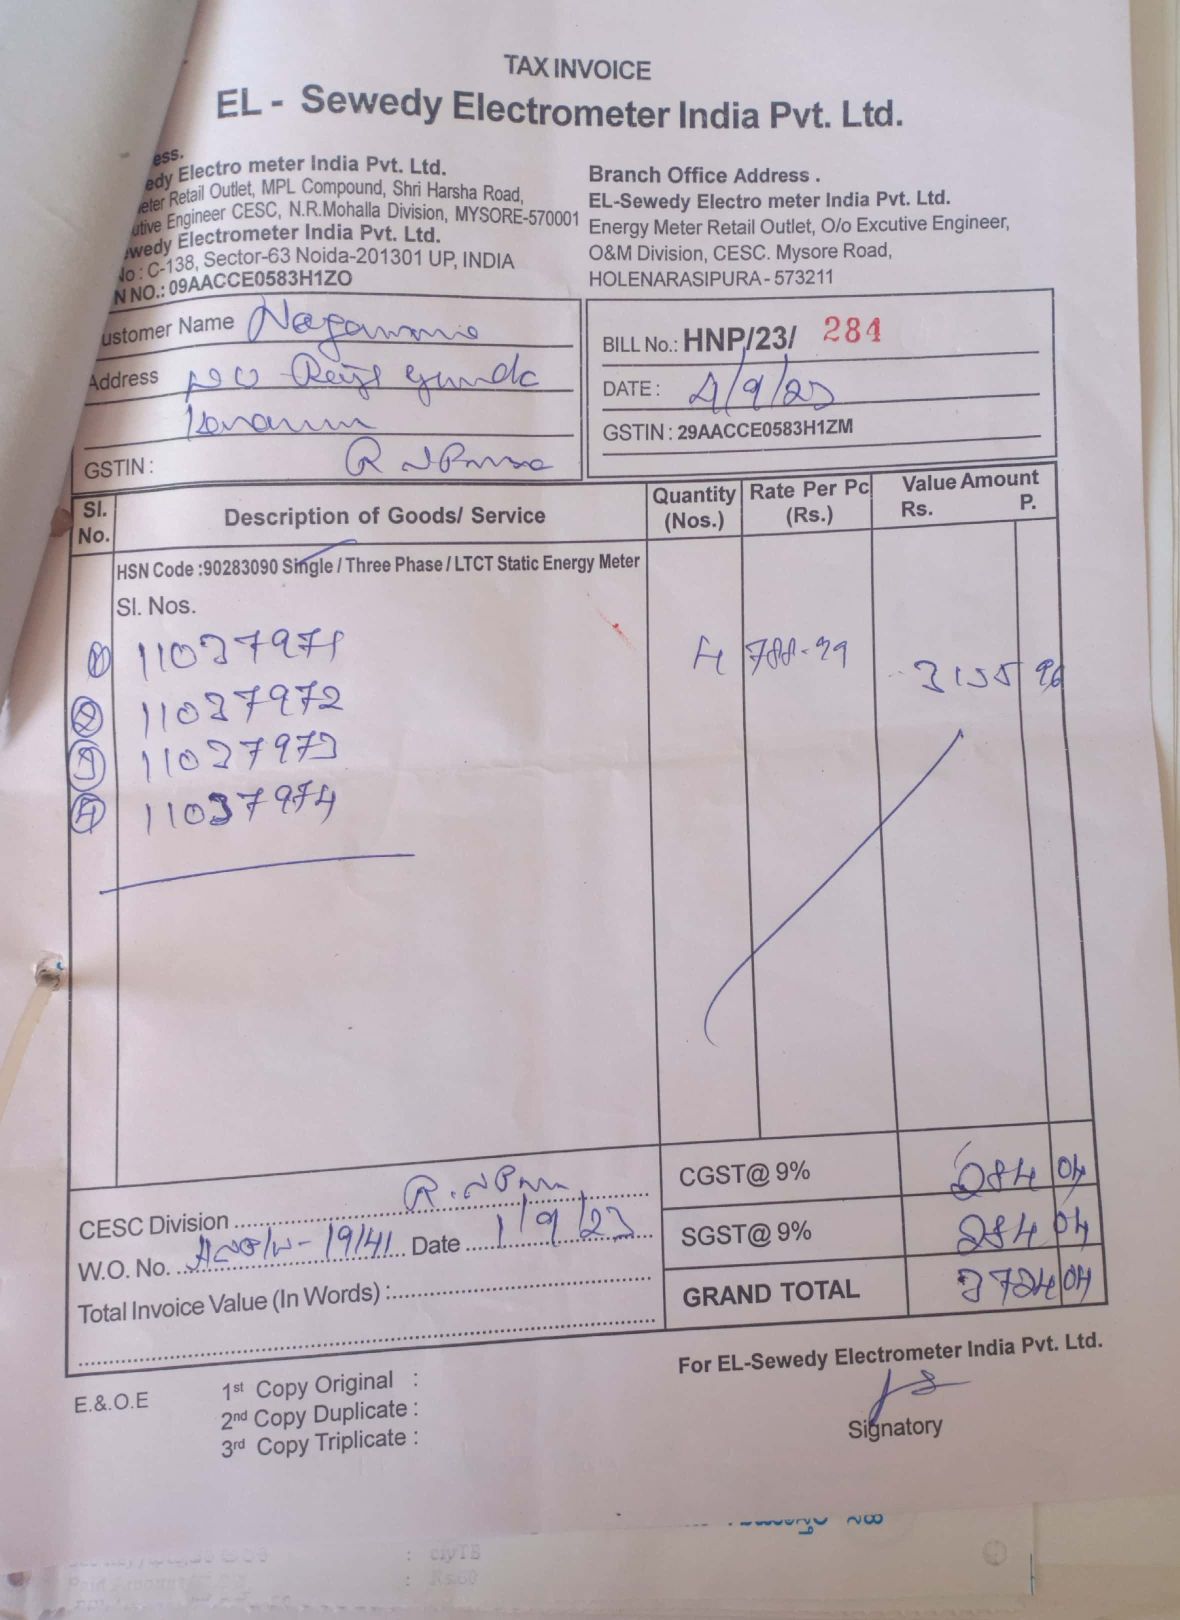 TAX INVOICE
EL - Sewedy Electrometer India Pvt. Ltd.
ess.
edy Electro meter India Pvt. Ltd.
eter Retail Outlet, MPL Compound, Shri Harsha Road,
utive Engineer CESC, N.R.Mohalla Division, MYSORE-570001
ewedy Electrometer India Pvt. Ltd.
No : C-138, Sector-63 Noida-201301 UP, INDIA
N NO.: 09AACCE0583H1ZO
Branch Office Address .
EL-Sewedy Electro meter India Pvt. Ltd.
Energy Meter Retail Outlet, O/o Excutive Engineer,
O&M Division, CESC. Mysore Road,
HOLENARASIPURA - 573211
ustomer Name
Address
GSTIN :
BILL No.: HNP/23/ 284
DATE : 4/9/23
GSTIN : 29AACCE0583H1ZM
Sl. No. Description of Goods/ Service Quantity (Nos.) Rate Per Pc (Rs.) Value Amount Rs. P.
HSN Code :90283090 Single / Three Phase / LTCT Static Energy Meter
Sl. Nos.
1 11037971 4 788-99 3155 96
2 11037972
3 11037973
4 11037974
CGST@ 9% 284 04
SGST@ 9% 284 04
GRAND TOTAL 3724 04
CESC Division
W.O. No. 19/41 Date 1/9/23
Total Invoice Value (In Words) :
For EL-Sewedy Electrometer India Pvt. Ltd.
Signatory
E.&.O.E
1st Copy Original :
2nd Copy Duplicate :
3rd Copy Triplicate :